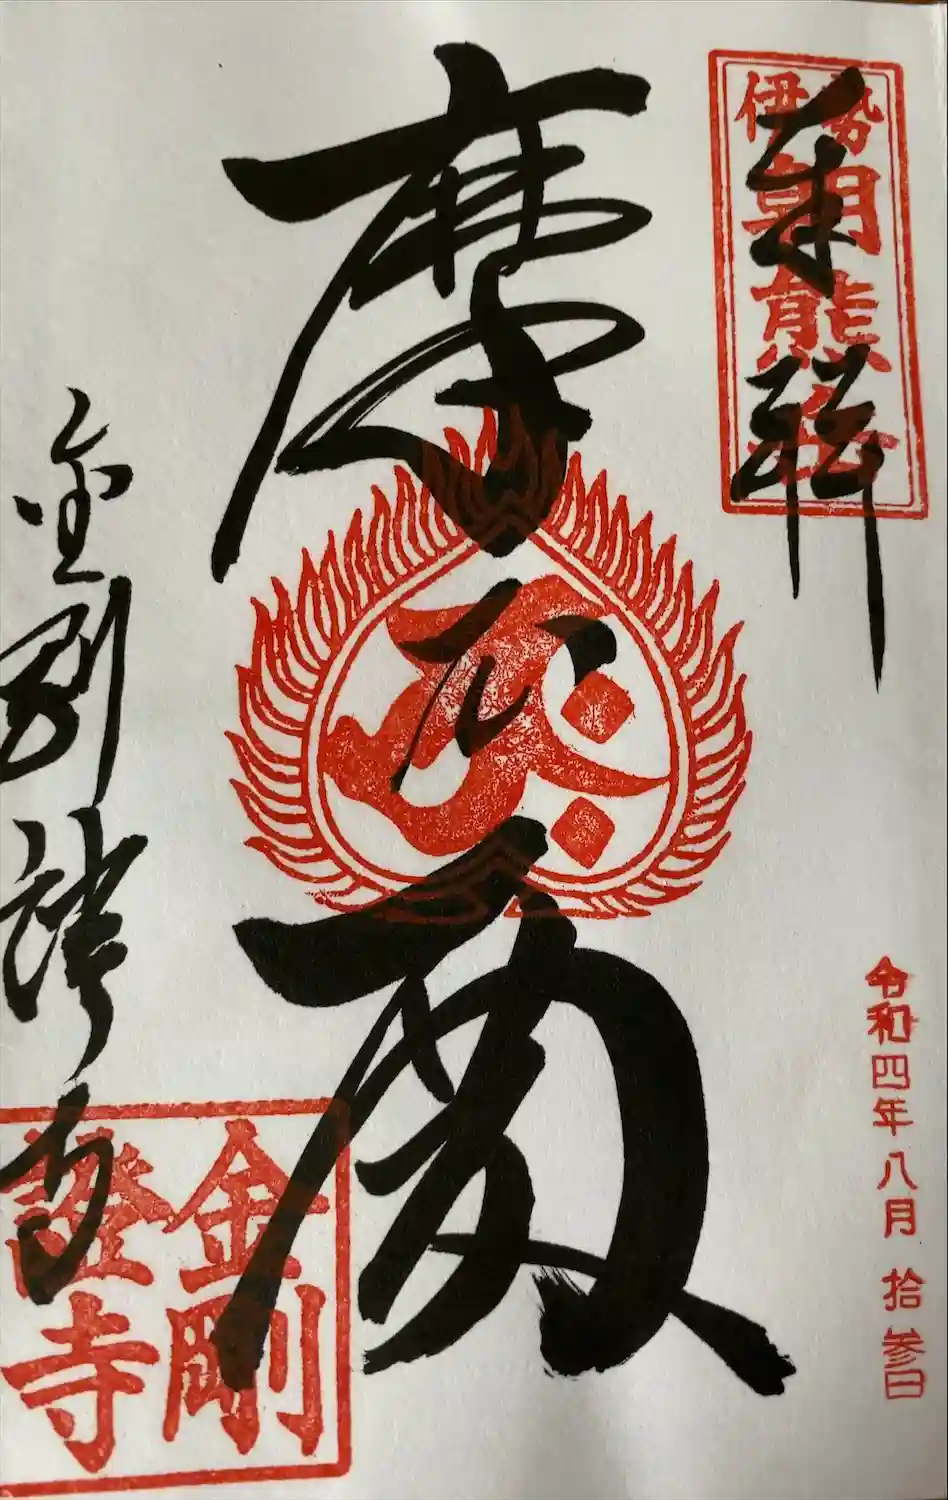 奉拝
伊勢朝熊
令和四年八月拾参日
摩尼
金剛證寺
金剛
證寺